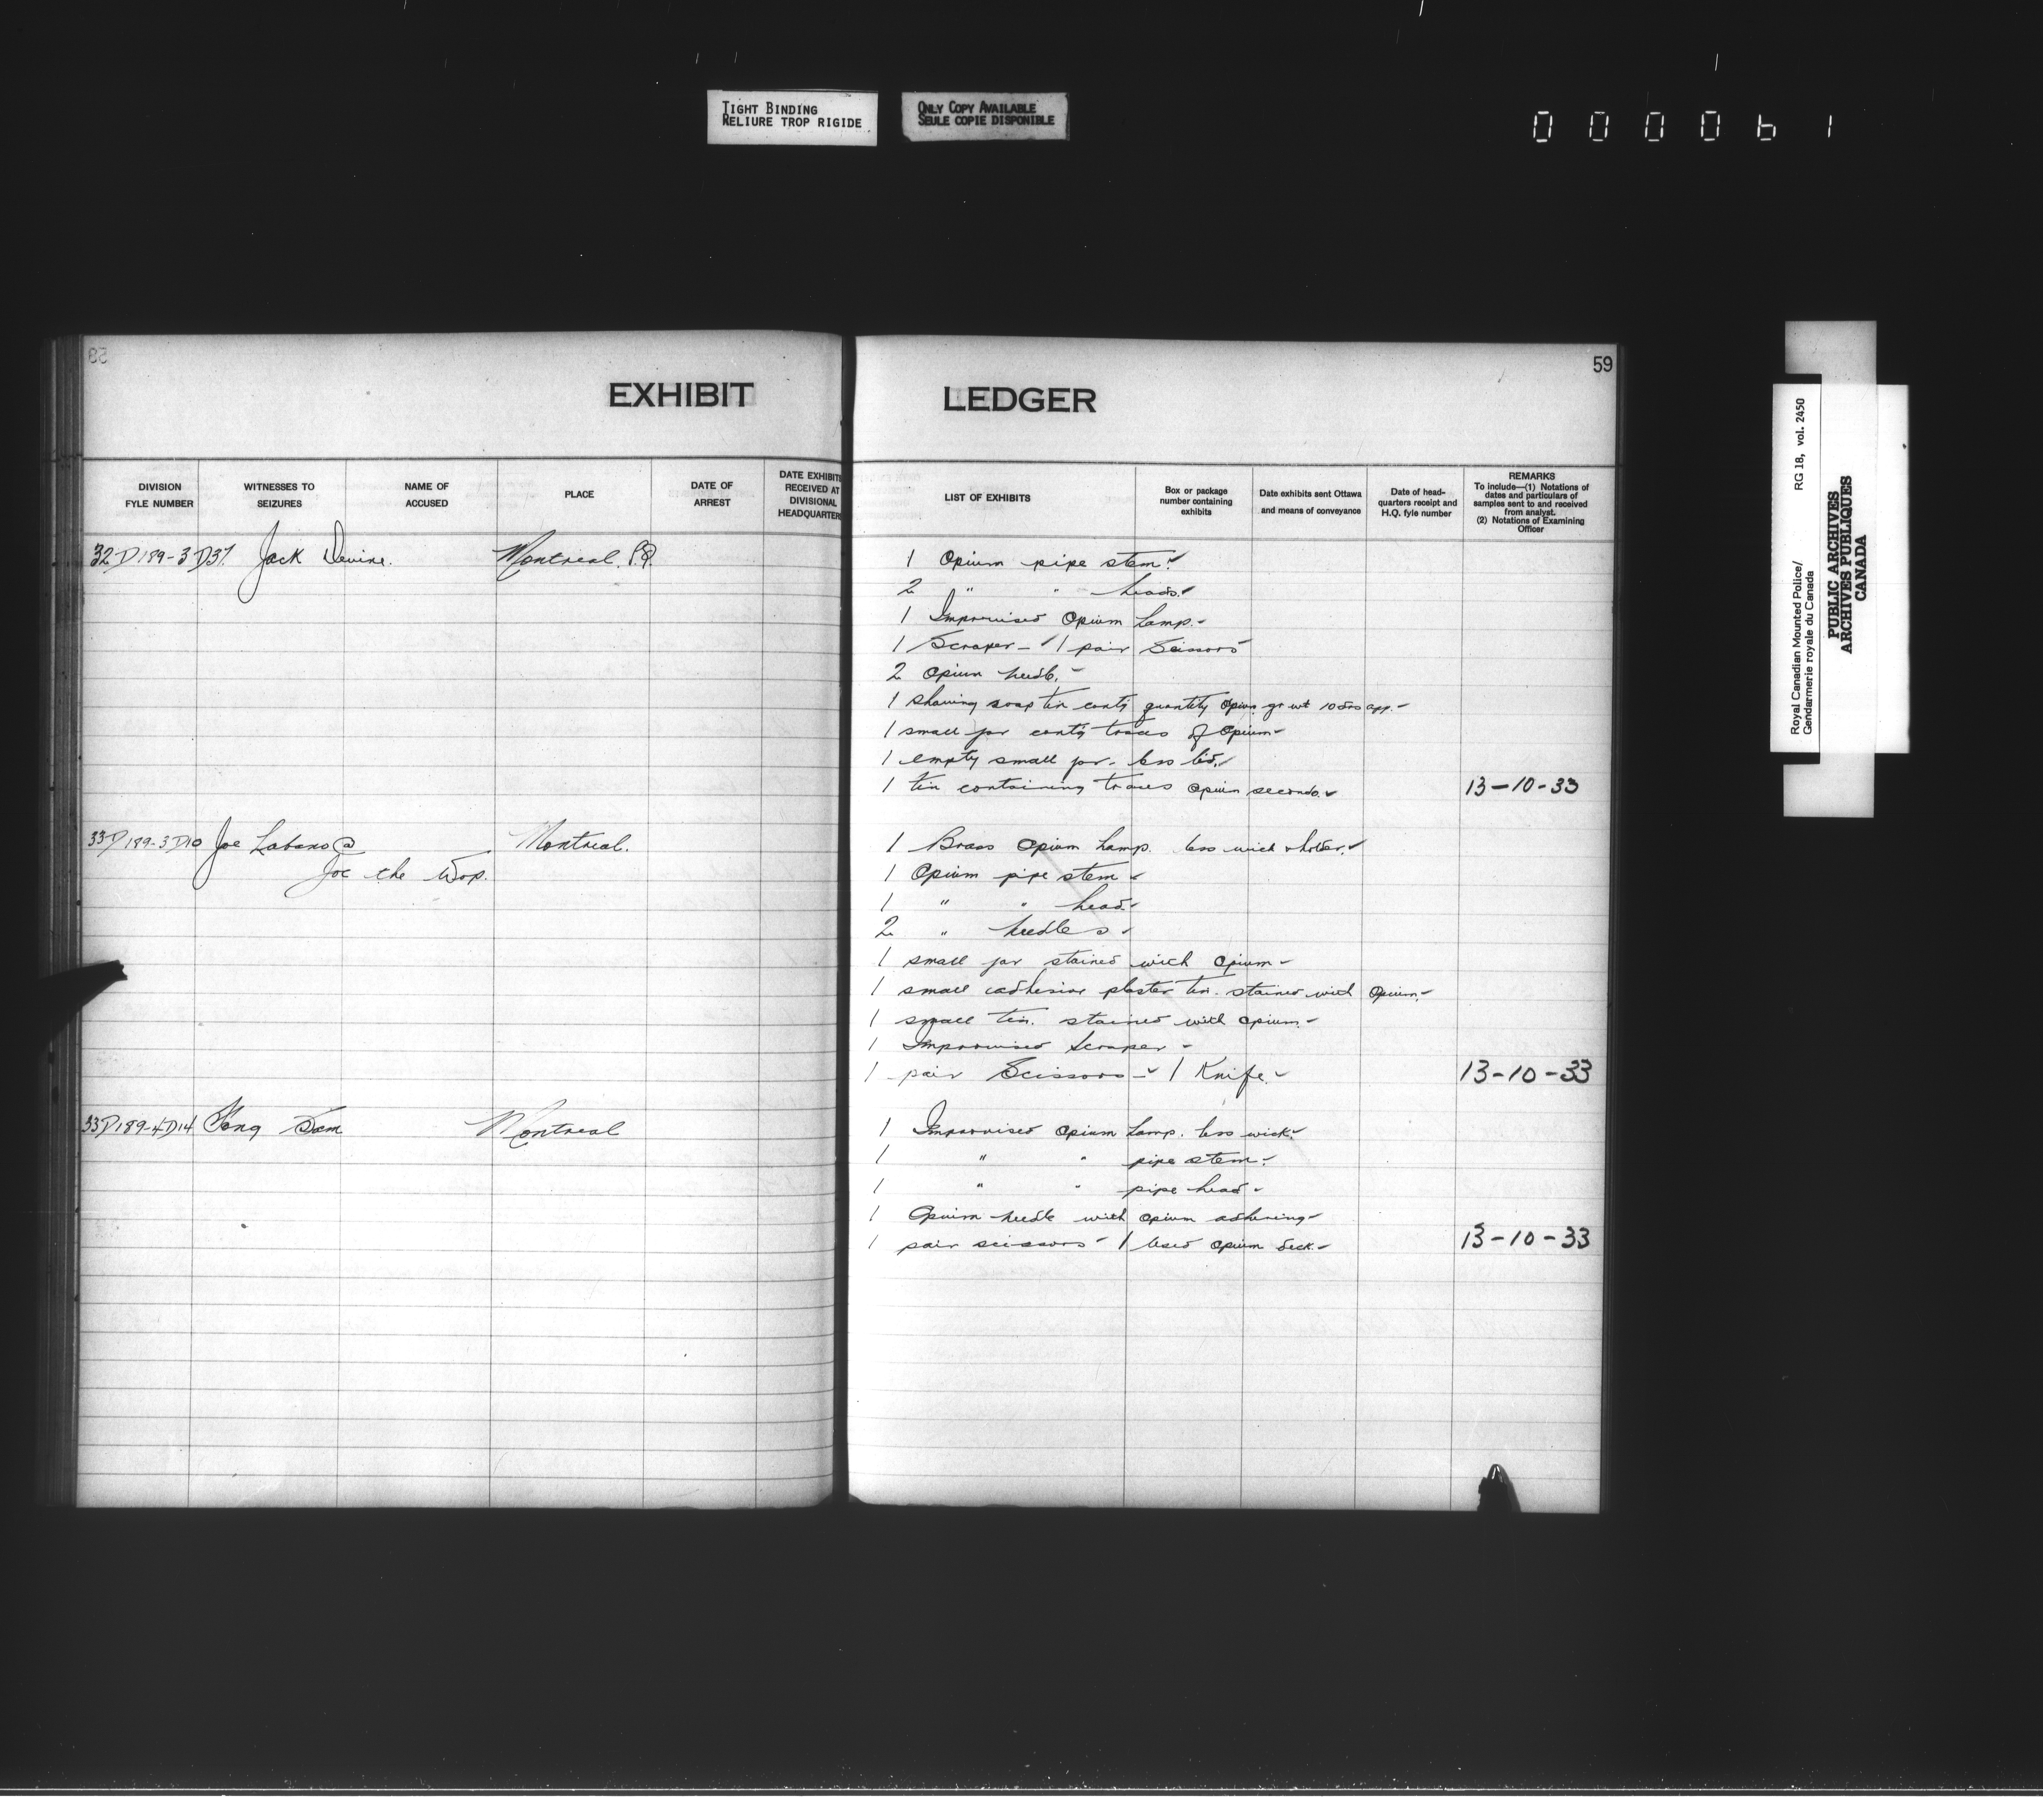 TIGHT BINDING
RELIURE TROP RIGIDE
ONLY COPY AVAILABLE
SEULE COPIE DISPONIBLE
000061
59
EXHIBIT LEDGER
DIVISION FYLE NUMBER
WITNESSES TO SEIZURES
NAME OF ACCUSED
PLACE
DATE OF ARREST
DATE EXHIBITS RECEIVED AT DIVISIONAL HEADQUARTERS
LIST OF EXHIBITS
Box or package number containing exhibits
Date exhibits sent Ottawa and means of conveyance
Date of head-quarters receipt and H.Q. fyle number
REMARKS
To include—(1) Notations of dates and particulars of samples sent to and received from analyst.
(2) Notations of Examining Officer
32D189-3D37 Jack Devine. Montreal. P.Q. 1 Opium pipe stem.
2 " " heads.
1 Improvised Opium Lamp.-
1 Scraper - 1 pair Scissors
2 Opium needle.
1 shaving soap tin contg quantity Opium gr wt 10 drs app.
1 small jar contg traces of Opium
1 empty small jar. less lid.
1 tin containing traces opium seconds. 13-10-33
33D189-3D10 Joe Labano @ Montreal. 1 Brass Opium Lamp. less wick & holder.
Joe the Wop. 1 Opium pipe stem
1 " " head.
2 " needles
1 small jar stained with Opium
1 small adhesive plaster tin. stained with Opium.
1 small tin. stained with opium.
1 Improvised Scraper
1 pair Scissors - 1 Knife. 13-10-33
33D189-4D14 Fong Sam Montreal 1 Improvised Opium Lamp. less wick.
1 " " pipe stem.
1 " " pipe head
1 Opium needle with opium adhering
1 pair scissors 1 Used opium deck. 13-10-33
Royal Canadian Mounted Police/
Gendarmerie royale du Canada
RG 18, vol. 2450
PUBLIC ARCHIVES
ARCHIVES PUBLIQUES
CANADA